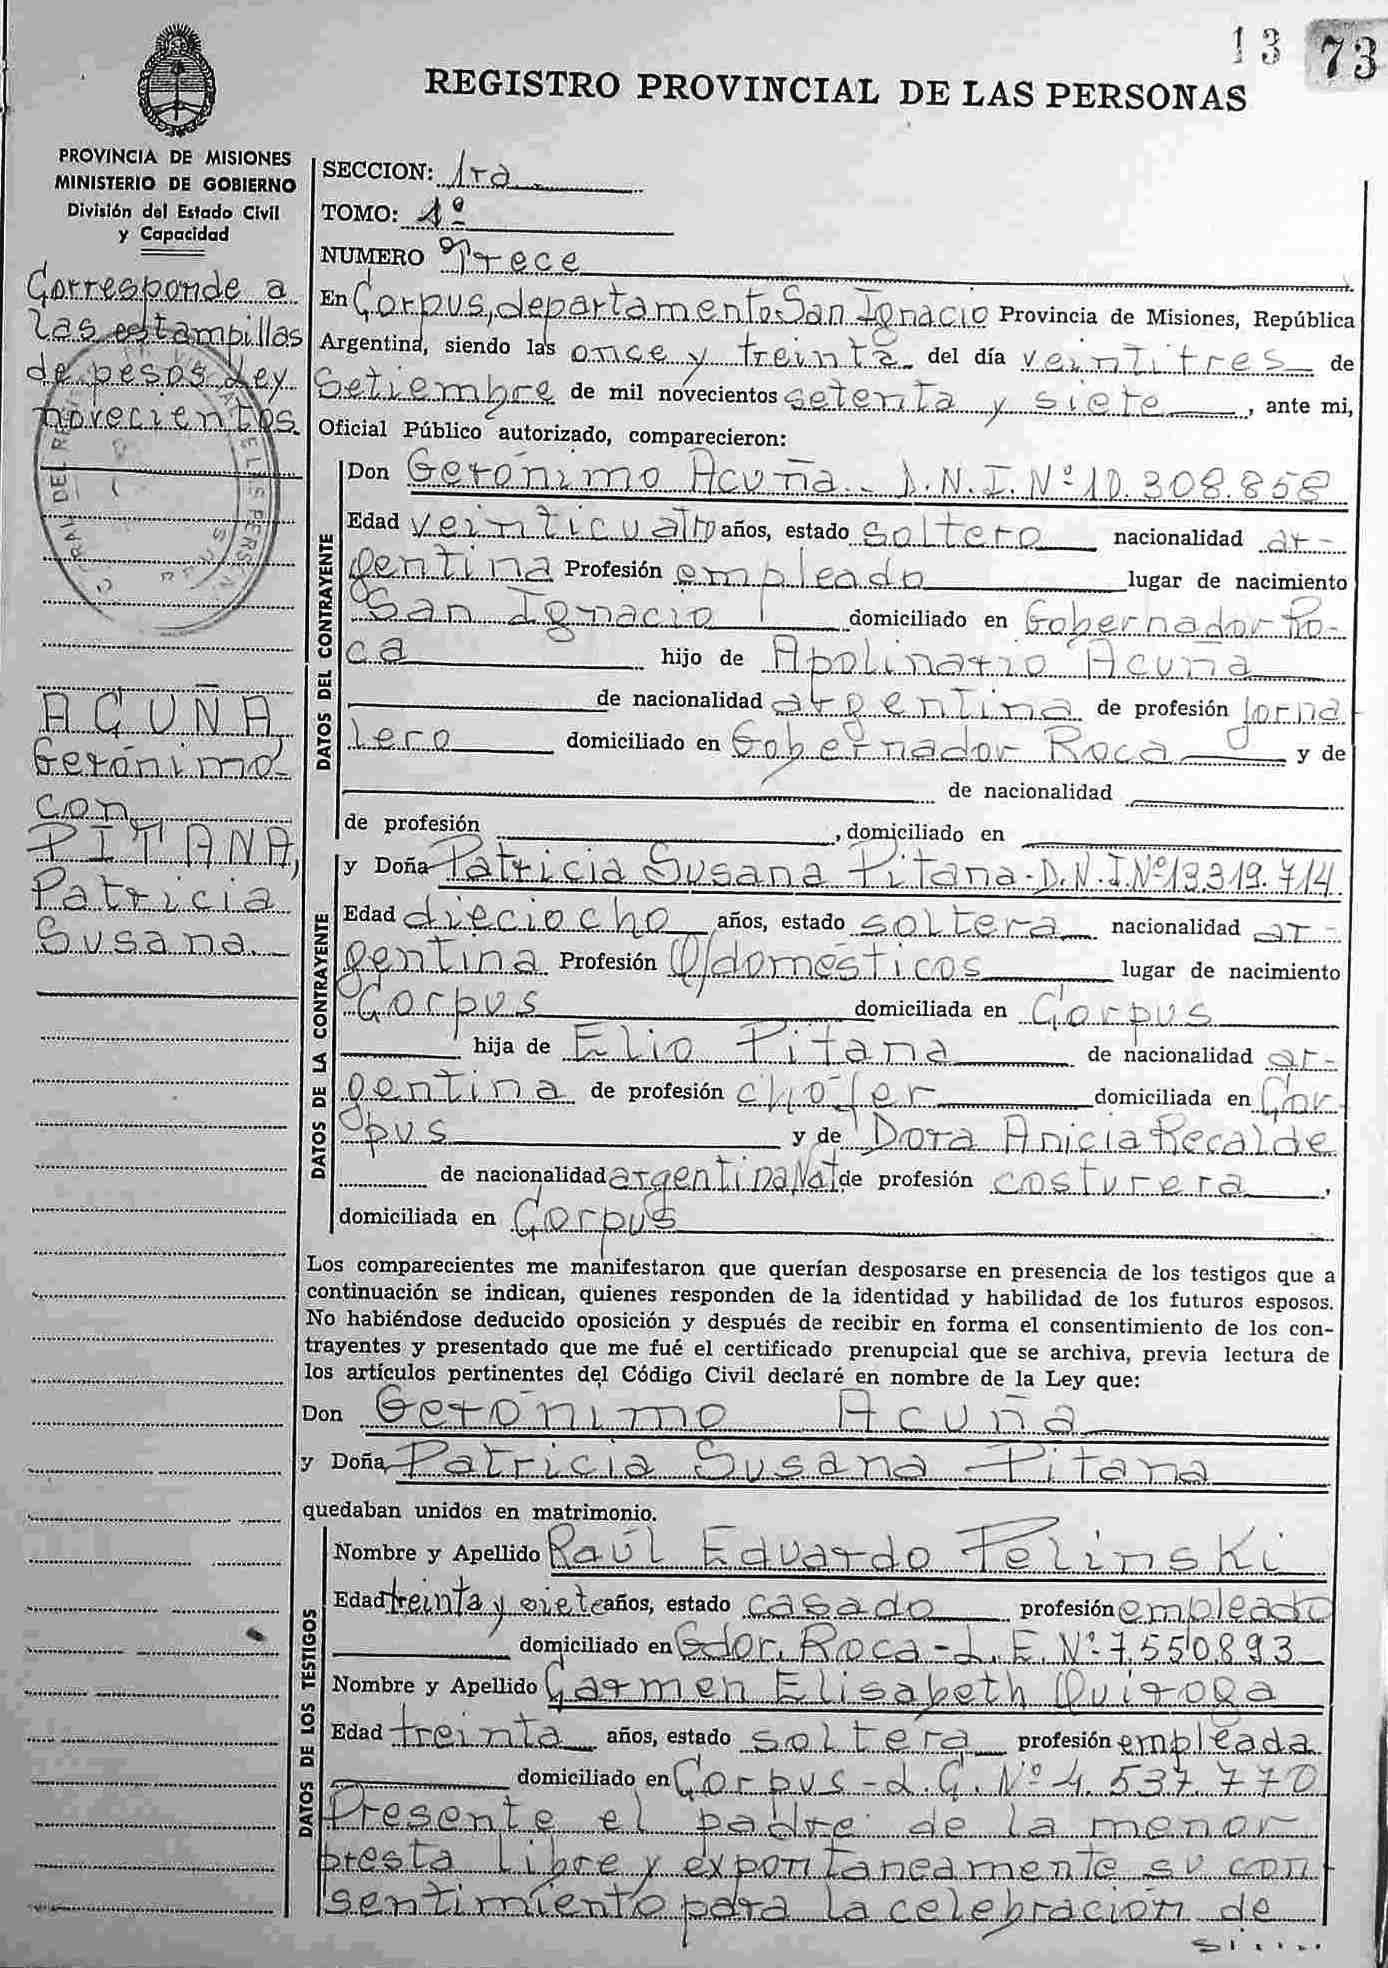 13 73
REGISTRO PROVINCIAL DE LAS PERSONAS
PROVINCIA DE MISIONES
MINISTERIO DE GOBIERNO
División del Estado Civil
y Capacidad
Corresponde a
las estampillas
de pesos Ley
novecientos.
ACUÑA
Gerónimo
con
PITANA,
Patricia
Susana.
SECCION: 1ra
TOMO: 1º
NUMERO Trece
En Corpus, departamento San Ignacio Provincia de Misiones, República
Argentina, siendo las once y treinta del día veintitres de
Setiembre de mil novecientos setenta y siete, ante mi,
Oficial Público autorizado, comparecieron:
DATOS DEL CONTRAYENTE
Don Gerónimo Acuña. D.N.I.Nº10.308.858
Edad veinticuatro años, estado soltero nacionalidad ar-
gentina Profesión empleado lugar de nacimiento
San Ignacio domiciliado en Gobernador Ro-
ca hijo de Apolinario Acuña
de nacionalidad argentina de profesión jorna
lero domiciliado en Gobernador Roca y de
de nacionalidad
de profesión , domiciliado en
DATOS DE LA CONTRAYENTE
y Doña Patricia Susana Pitana-D.N.I.Nº13.319.714.
Edad dieciocho años, estado soltera nacionalidad ar-
gentina Profesión Q/domésticos lugar de nacimiento
Corpus domiciliada en Corpus
hija de Elio Pitana de nacionalidad ar-
gentina de profesión chofer domiciliada en Cor-
pus y de Dora Anicia Recalde
de nacionalidad argentina Nat de profesión costurera,
domiciliada en Corpus
Los comparecientes me manifestaron que querían desposarse en presencia de los testigos que a
continuación se indican, quienes responden de la identidad y habilidad de los futuros esposos.
No habiéndose deducido oposición y después de recibir en forma el consentimiento de los con-
trayentes y presentado que me fué el certificado prenupcial que se archiva, previa lectura de
los artículos pertinentes del Código Civil declaré en nombre de la Ley que:
Don Gerónimo Acuña
y Doña Patricia Susana Pitana
quedaban unidos en matrimonio.
DATOS DE LOS TESTIGOS
Nombre y Apellido Raúl Eduardo Pelinski
Edad treinta y siete años, estado casado profesión empleado
domiciliado en Gdor. Roca-L.E.Nº7.550.893
Nombre y Apellido Carmen Elisabeth Quiroga
Edad treinta años, estado soltera profesión empleada
domiciliado en Corpus-L.C.Nº4.537.770
Presente el padre de la menor
presta libre y expontaneamente su con
sentimiento para la celebración de
si.....